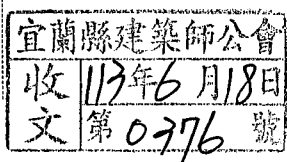 宜蘭縣建築師公會
收文
113年6月18日
第0376號